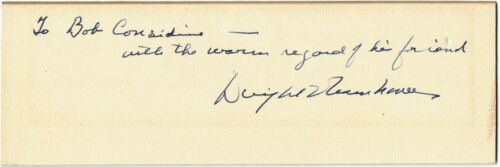 To Bob Considine —
with the warm regard of his friend
Dwight D Eisenhower